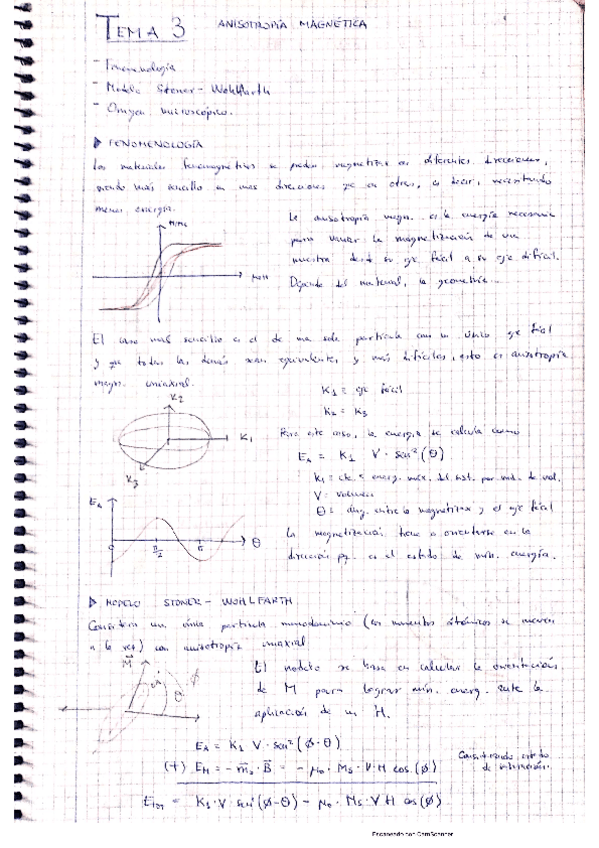 TEMA 3 ANISOTROPÍA MAGNÉTICA
- Fenomenología
- Modelo Stoner-Wohlfarth
- Origen microscópico.
▷ FENOMENOLOGÍA
Los materiales ferromagnéticos se pueden magnetizar en diferentes direcciones,
siendo más sencillo en unas direcciones que en otras, es decir, necesitando
menos energía.
M/Ms
μ₀H
La anisotropía magn. es la energía necesaria
para variar la magnetización de una
muestra desde su eje fácil a su eje difícil.
Depende del material, la geometría...
El caso más sencillo es el de una sola partícula con un único eje fácil
y que todos los demás sean equivalentes y más difíciles, esto es anisotropía
magn. uniaxial.
K₂
K₁
K₃
K₁ = eje fácil
K₂ = K₃
Para este caso, la energía se calcula como
E_A = K₁ V · sen²(θ)
K₁ = cte. energ. del mat. por unid. de vol.
V = volumen
θ = áng. entre la magnetización y el eje fácil
E_A
0 π/2 π θ
La magnetización tiene a orientarse en la
dirección pq. es el estado de mín. energía.
▷ MODELO STONER-WOHLFARTH
Considera una única partícula monodominio (los momentos atómicos se mueven
a la vez) con anisotropía uniaxial
M
θ φ
El modelo se basa en calcular la orientación
de M para lograr mín. energ. ante la
aplicación de un H.
E_A = K₁ V · sen²(φ-θ)
(+) E_H = -m · B = -μ₀ · Ms · V · H cos(φ)
Considerando
de
E_TOT = K₁ · V · sen²(φ-θ) - μ₀ · Ms · V H cos(φ)
Escaneado con CamScanner